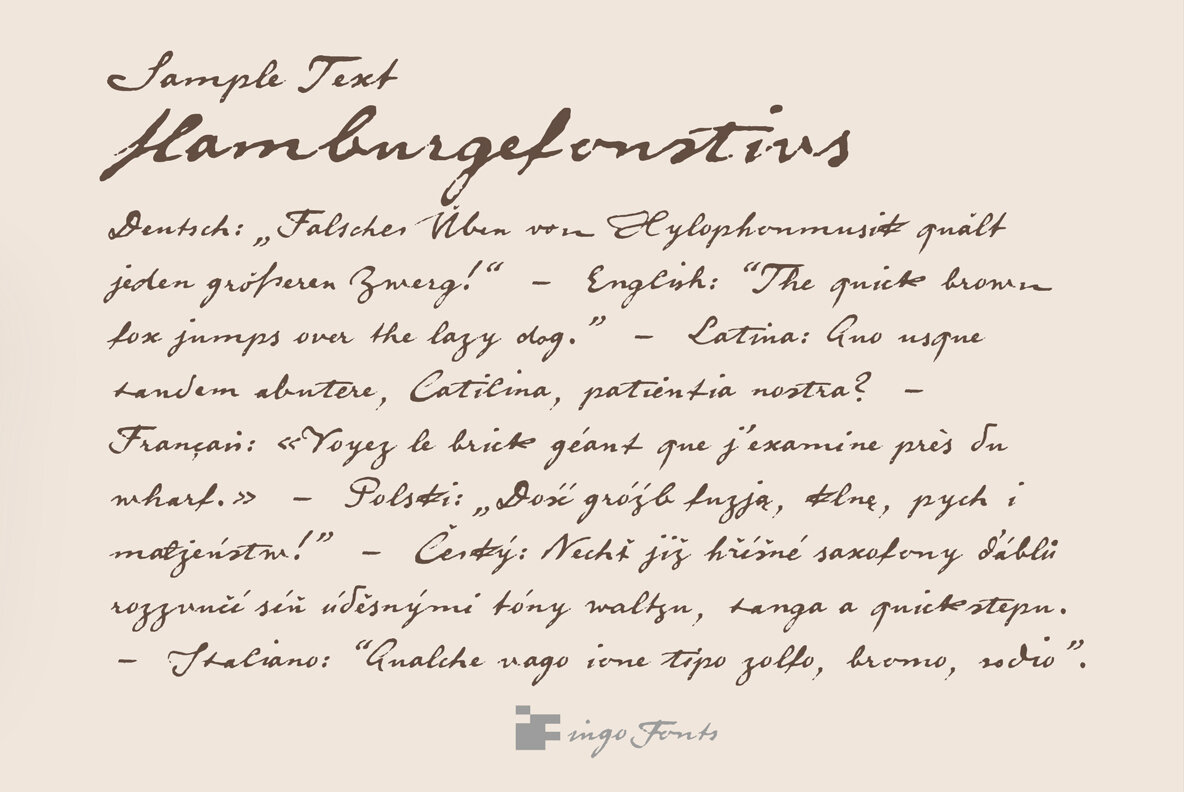 Sample Text
Hamburgefonstivs
Deutsch: „Falsches Üben von Xylophonmusik quält
jeden größeren Zwerg!“ – English: “The quick brown
fox jumps over the lazy dog.” – Latina: Quo usque
tandem abutere, Catilina, patientia nostra? –
Français: «Voyez le brick géant que j’examine près du
wharf.» – Polski: „Dość gróźb fuzją, klnę, pych i
małżeństw!” – Český: Nechť již hříšné saxofony ďáblů
rozzvučí síň úděsnými tóny waltzu, tanga a quickstepu.
– Italiano: “Qualche vago ione tipo zolfo, bromo, sodio”.
ingo Fonts